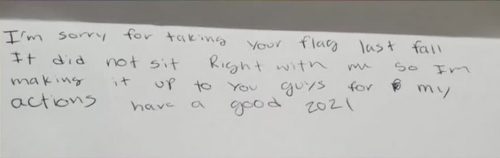 I'm sorry for taking your flag last fall
It did not sit Right with me so I'm
making it up to you guys for my
actions have a good 2021